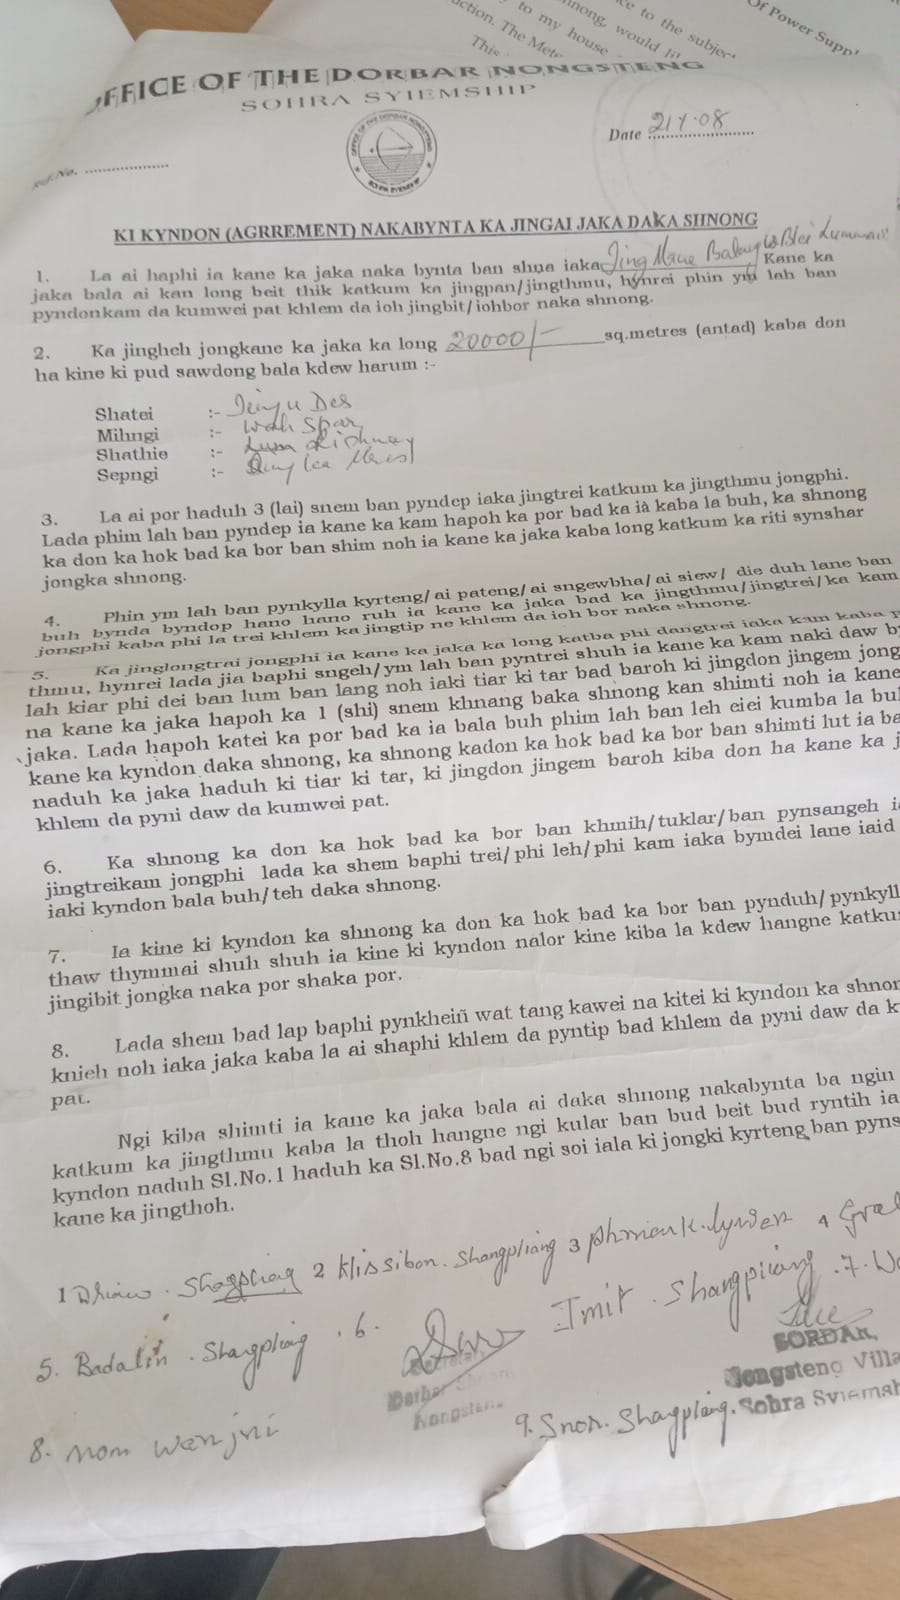 ce to the subject
Of Power Suppl
nnong, would li
uction. The Mete
to my house
This
OFFICE OF THE DORBAR NONGSTENG
SOHRA SYIEMSHIP
OFFICE OF THE DORBAR NONGSTENG
SOHRA SYIEMSHIP
Ref.No. ..................
Date 21/7.08
KI KYNDON (AGRREMENT) NAKABYNTA KA JINGAI JAKA DAKA SHNONG
1. La ai haphi ia kane ka jaka naka bynta ban shna iaka Jing Mane Kane ka
jaka bala ai kan long beit thik katkum ka jingpan/jingthmu, hynrei phin ym lah ban
pyndonkam da kumwei pat khlem da ioh jingbit/iohbor naka shnong.
2. Ka jingheh jongkane ka jaka ka long 20000/- sq.metres (antad) kaba don
ha kine ki pud sawdong bala kdew harum :-
Shatei :-
Mihngi :- Wah Spar
Shathie :- Lum
Sepngi :-
3. La ai por haduh 3 (lai) snem ban pyndep iaka jingtrei katkum ka jingthmu jongphi.
Lada phim lah ban pyndep ia kane ka kam hapoh ka por bad ka ia kaba la buh, ka shnong
ka don ka hok bad ka bor ban shim noh ia kane ka jaka kaba long katkum ka riti synshar
jongka shnong.
4. Phin ym lah ban pynkylla kyrteng/ai pateng/ai sngewbha/ai siew/ die duh lane ban
buh bynda byndop hano hano ruh ia kane ka jaka bad ka jingthmu/jingtrei/ka kam
jongphi kaba phi la trei khlem ka jingtip ne khlem da ioh bor naka shnong.
5. Ka jinglongtrai jongphi ia kane ka jaka ka long katba phi dangtrei iaka kam kaba p
thmu, hynrei lada jia baphi sngeh/ym lah ban pyntrei shuh ia kane ka kam naki daw b
lah kiar phi dei ban lum ban lang noh iaki tiar ki tar bad baroh ki jingdon jingem jong
na kane ka jaka hapoh ka 1 (shi) snem khnang baka shnong kan shimti noh ia kane
jaka. Lada hapoh katei ka por bad ka ia bala buh phim lah ban leh eiei kumba la bu
kane ka kyndon daka shnong, ka shnong kadon ka hok bad ka bor ban shimti lut ia ba
naduh ka jaka haduh ki tiar ki tar, ki jingdon jingem baroh kiba don ha kane ka j
khlem da pyni daw da kumwei pat.
6. Ka shnong ka don ka hok bad ka bor ban khmih/tuklar/ban pynsangeh i
jingtreikam jongphi lada ka shem baphi trei/phi leh/phi kam iaka bymdei lane iaid
iaki kyndon bala buh/teh daka shnong.
7. Ia kine ki kyndon ka shnong ka don ka hok bad ka bor ban pynduh/pynkyll
thaw thymmai shuh shuh ia kine ki kyndon nalor kine kiba la kdew hangne katku
jingibit jongka naka por shaka por.
8. Lada shem bad lap baphi pynkheiñ wat tang kawei na kitei ki kyndon ka shnor
knieh noh iaka jaka kaba la ai shaphi khlem da pyntip bad khlem da pyni daw da k
pat.
Ngi kiba shimti ia kane ka jaka bala ai daka shnong nakabynta ba ngin
katkum ka jingthmu kaba la thoh hangne ngi kular ban bud beit bud ryntih ia
kyndon naduh Sl.No.1 haduh ka Sl.No.8 bad ngi soi iala ki jongki kyrteng ban pyns
kane ka jingthoh.
1 2 Klissibon. Shangpliang 3 Phmian K. Lyngen 4 Gra
5. Badalin. Shagpliang. 6. Imit. Shangpliang. 7. W
Secretary,
Dorbar Shnong
Nongsteng
SORDAR,
Nongsteng Villa
Sohra Syiemsh
8. Mom Wanjri 9. Snor. Shagpliang.